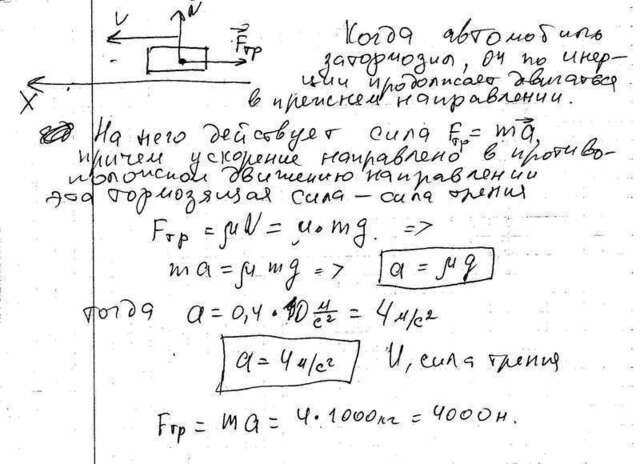 V
N
F⃗тр
X
Когда автомобиль
затормозил, он по инер-
ции продолжает двигаться
в прежнем направлении.
На него действует сила Fтр = ma⃗,
причем ускорение направлено в противо-
положном движению направлении
эта тормозящая сила – сила трения
Fтр = μN = μ•mg. =>
ma = μmg => a = μg
тогда a = 0,4 • 10 м/с² = 4 м/с²
a = 4 м/с² И, сила трения
Fтр = ma = 4 • 1000кг = 4000н.